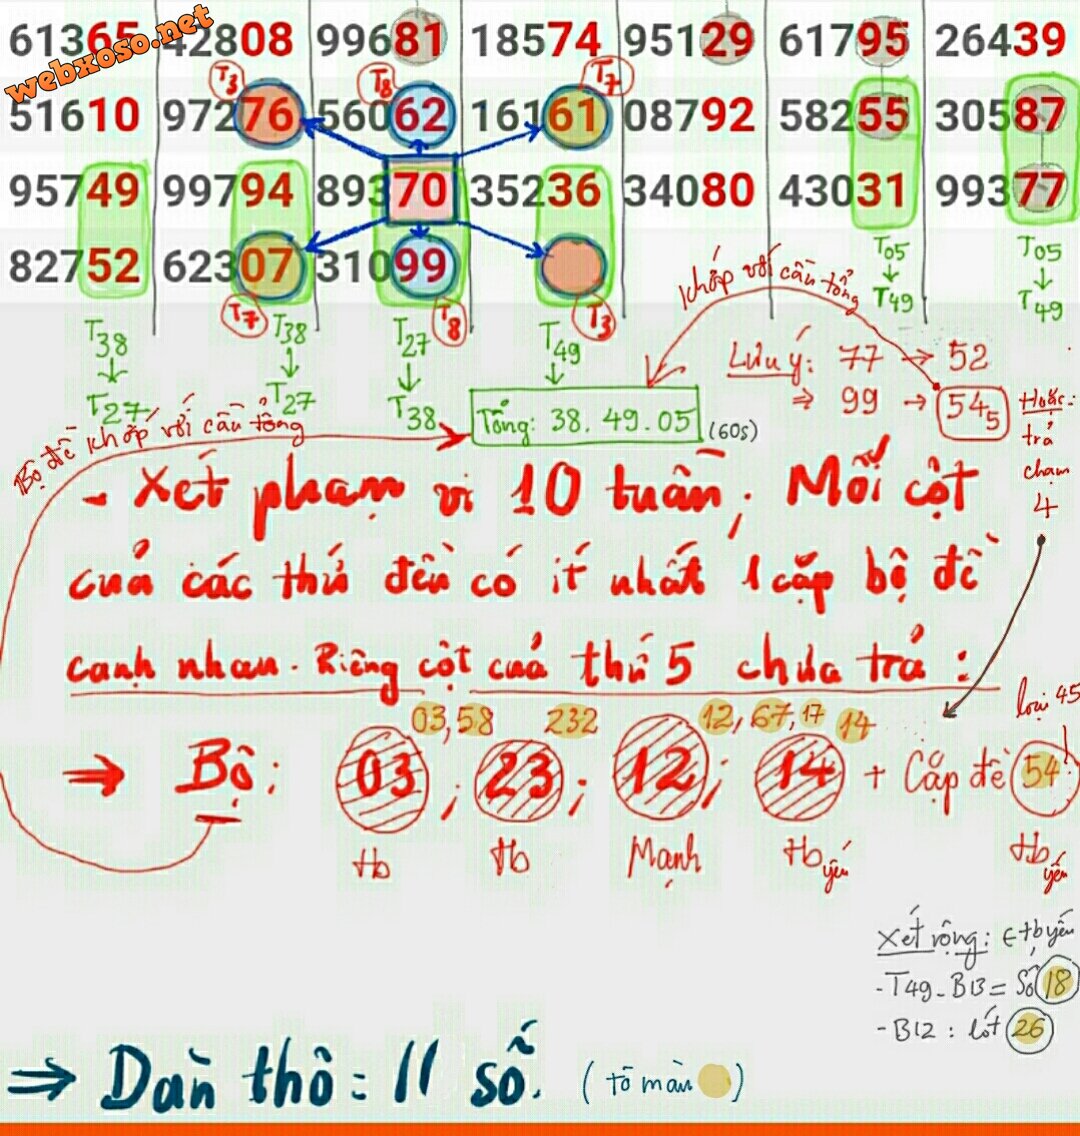 webxoso.net
61365 42808 99681 18574 95129 61795 26439
T3 T8 T7
51610 97276 56062 16161 08792 58255 30587
95749 99794 89370 35236 34080 43031 99377
82752 62307 31099
T7 T8 T3
T38 T38 T27 T49 T05 T05
T27 T27 T38 T49 T49
khớp với cần tổng
Lưu ý: 77 → 52
⇒ 99 → 545
Hoặc:
trả
chạm
4
Tổng: 38. 49. 05 (60s)
Bộ đề khớp với cần tổng
- Xét phạm vi 10 tuần, Mỗi cột
của các thứ đều có ít nhất 1 cặp bộ đề
cạnh nhau. Riêng cột của thứ 5 chưa trả:
loại 45
03, 58 232 12, 67, 17 14
⇒ Bộ: 03; 23; 12; 14 + Cặp đề 54
tb tb Mạnh tb yếu tb yếu
Xét rộng: € tb yếu
- T49 - B13 = Số 18
- B12: lót 26
⇒ Dàn thô = 11 số. (tô màu)